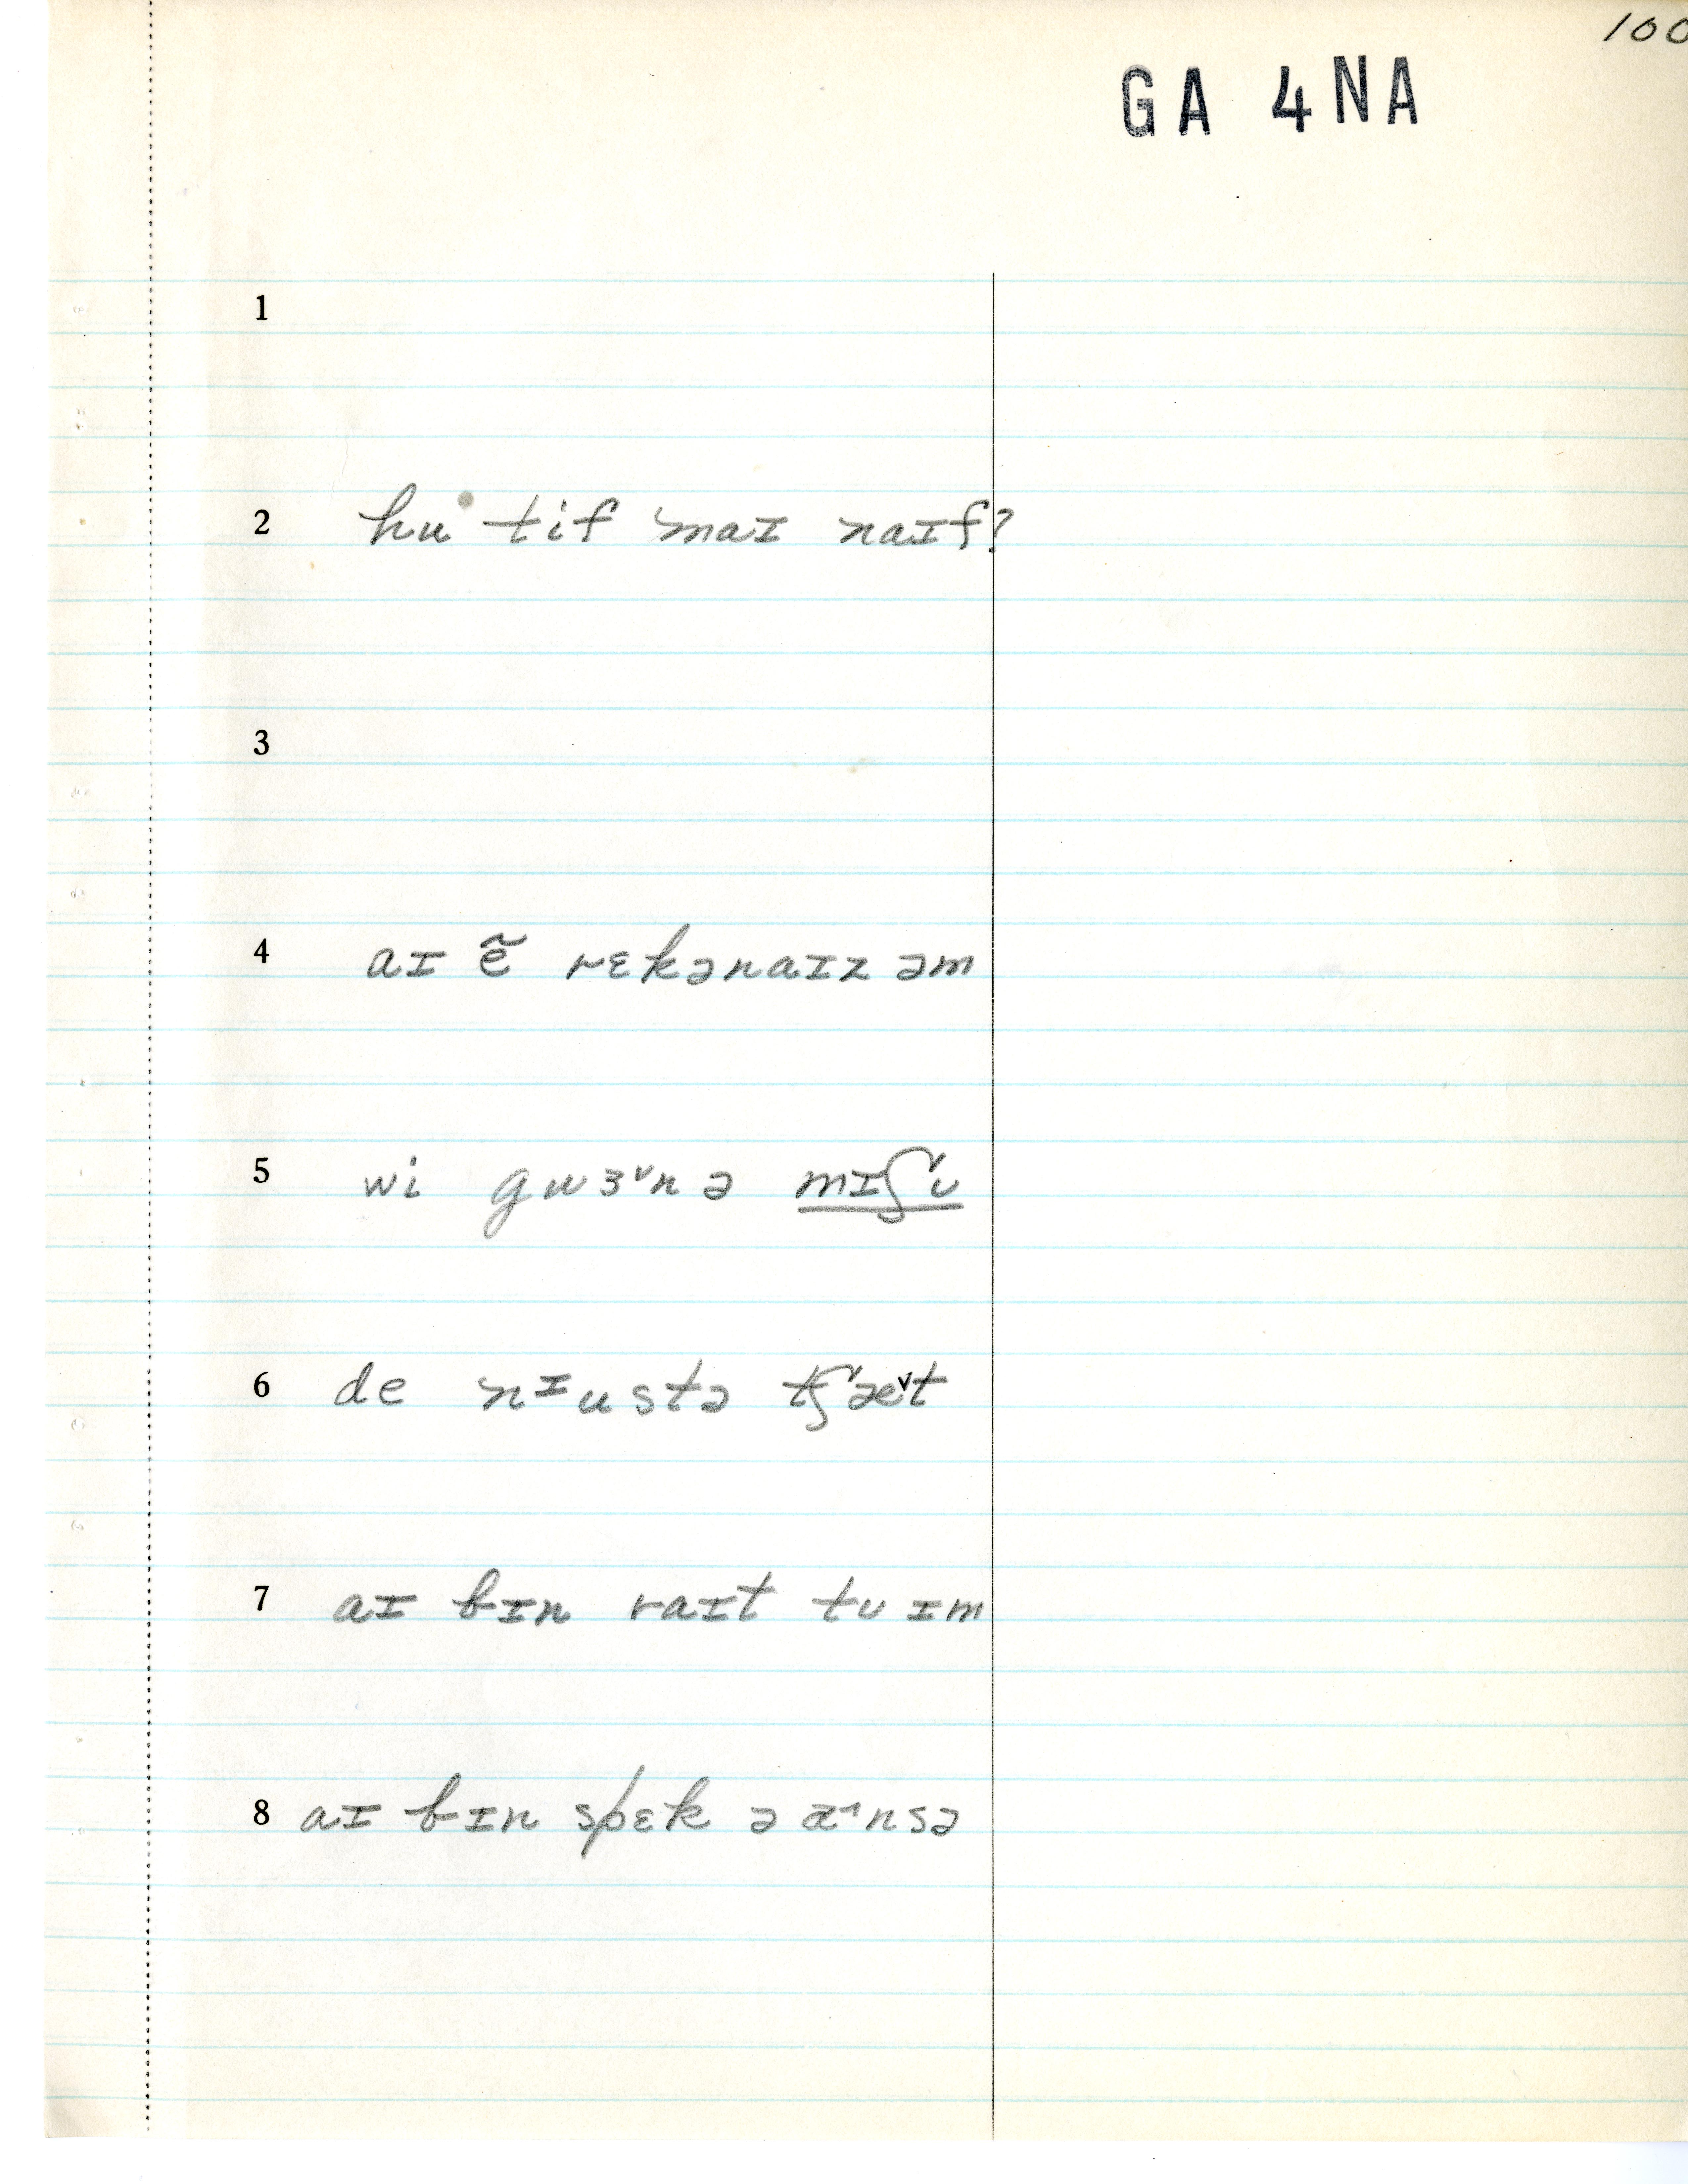 100
GA 4NA
1
2 hu tif maɪ naɪf?
3
4 aɪ ẽ rɛkənaɪz əm
5 wi gwɜ˅n ə mɪʃ˅ʋ
6 de nɪustə tʃ˅æ˅t
7 aɪ bɪn raɪt tʋ ɪm
8 aɪ bɪn spɛk ə æ˄nsə